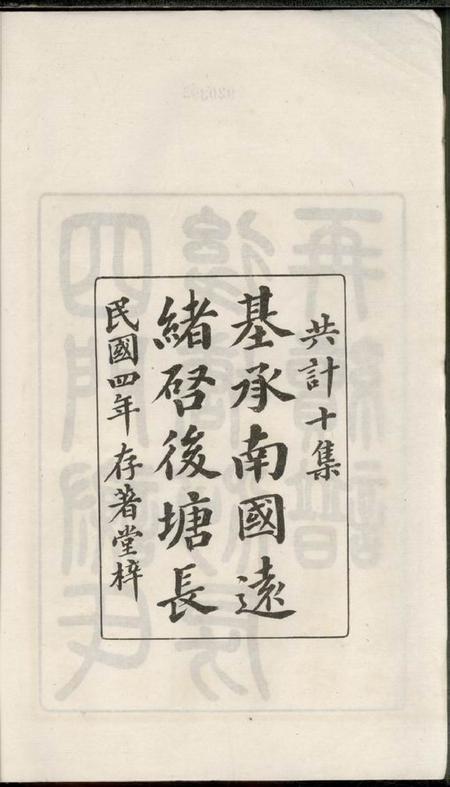 共計十集
基承南國遠
緒啓後塘長
民國四年 存著堂梓